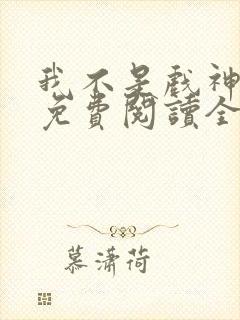 我不是戲神
免費閱讀全
慕瀟荷